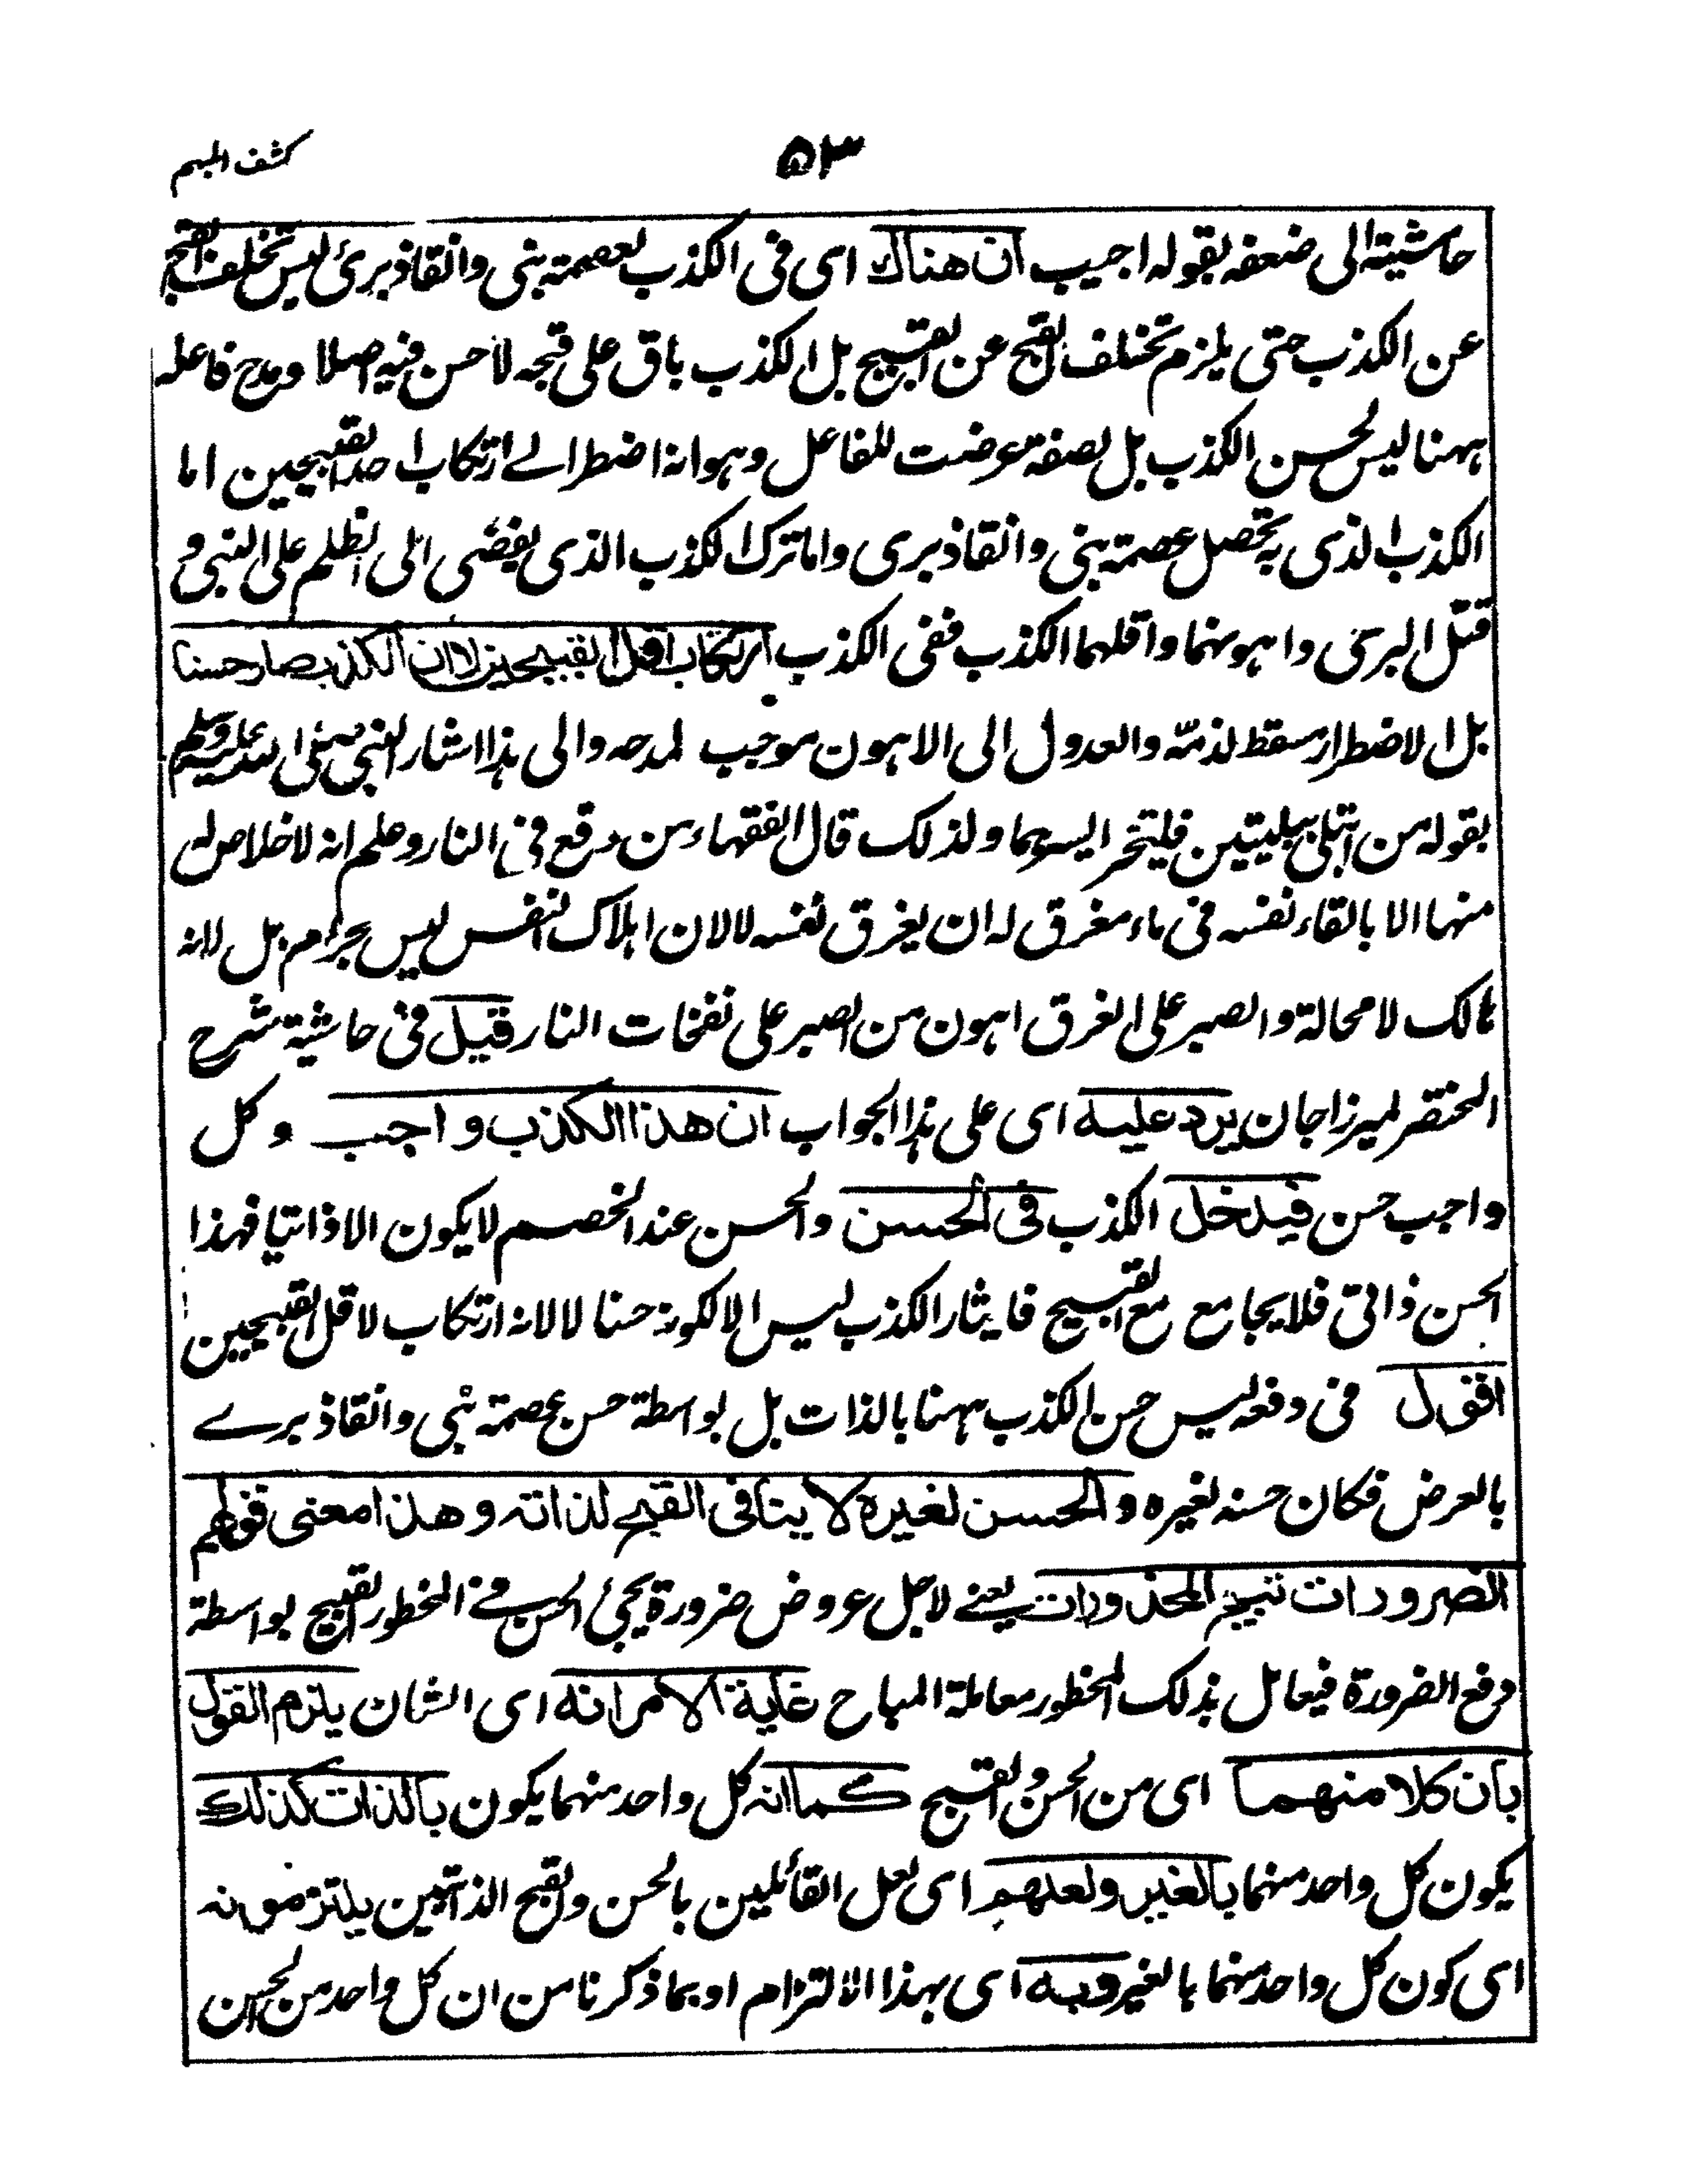 ۵۳
كشف المبهم
حاشيته الى ضعفه بقوله اجيب ان هناك اى فى الكذب لعصمة نبى وانقاذ برئ ليس تخلف القبح
عن الكذب حتى يلزم تخلف القبح عن القبيح بل الكذب باق على قبحه لا حسن فيه اصلا ومدح فاعله
ههنا ليس لحسن الكذب بل لصفة عرضت للفاعل وهو انه اضطر الے ارتكاب احد القبيحين اما
الكذب الذى به تحصل عصمة نبى وانقاذ برى واما ترك الكذب الذى يفضى الى الظلم على النبى و
قتل البرئ واهو منهما واقلهما الكذب ففى الكذب ارتكاب اقل القبيحين لا ان الكذب صار حسنا
بل الاضطرار مسقط لذمّه والعدول الى الاهون موجب لمدحه والى هذا اشار النبى صلى الله عليه وسلم
بقوله من ابتلى ببليتين فليتخر ايسرهما ولذلك قال الفقهاء من وقع فى النار وعلم انه لا خلاص له
منها الا بالقاء نفسه فى ماء مغرق له ان يغرق نفسه لا لان اهلاك النفس ليس بجرم بل لانه
هالك لا محالة والصبر على الغرق اهون من الصبر على نفخات النار قيل فى حاشية شرح
المختصر لميرزاجان يرد عليه اى على هذا الجواب ان هذا الكذب واجب وكل
واجب حسن فيدخل الكذب فى الحسن والحسن عند الخصم لا يكون الا ذاتيا فهذا
الحسن ذاتى فلا يجامع مع القبيح فايثار الكذب ليس الا لكونه حسنا لا لانه ارتكاب لاقل القبيحين
اقول فى دفعه ليس حسن الكذب ههنا بالذات بل بواسطة حسن عصمة نبى وانقاذ برے
بالعرض فكان حسنه لغيره والحسن لغيره لا ينافى القبح لذاته وهذا معنى قولهم
الضرورات تبيح المحذورات يعنے لاجل عروض ضرورة يجئ الحسن فے المحظور القبيح بواسطة
دفع الضرورة فيعامل بذلك المحظور معاملة المباح غاية الامر انه اى الشان يلزم القول
بان كلا منهما اى من الحسن والقبح كما انه كل واحد منهما يكون بالذات كذلك
يكون كل واحد منهما بالغير ولعلهم اى لعل القائلين بالحسن والقبح الذاتيين يلتزمونه
اى كون كل واحد منهما بالغير وبه اى بهذا الالتزام او بما ذكرنا من ان كل واحد من الحسن